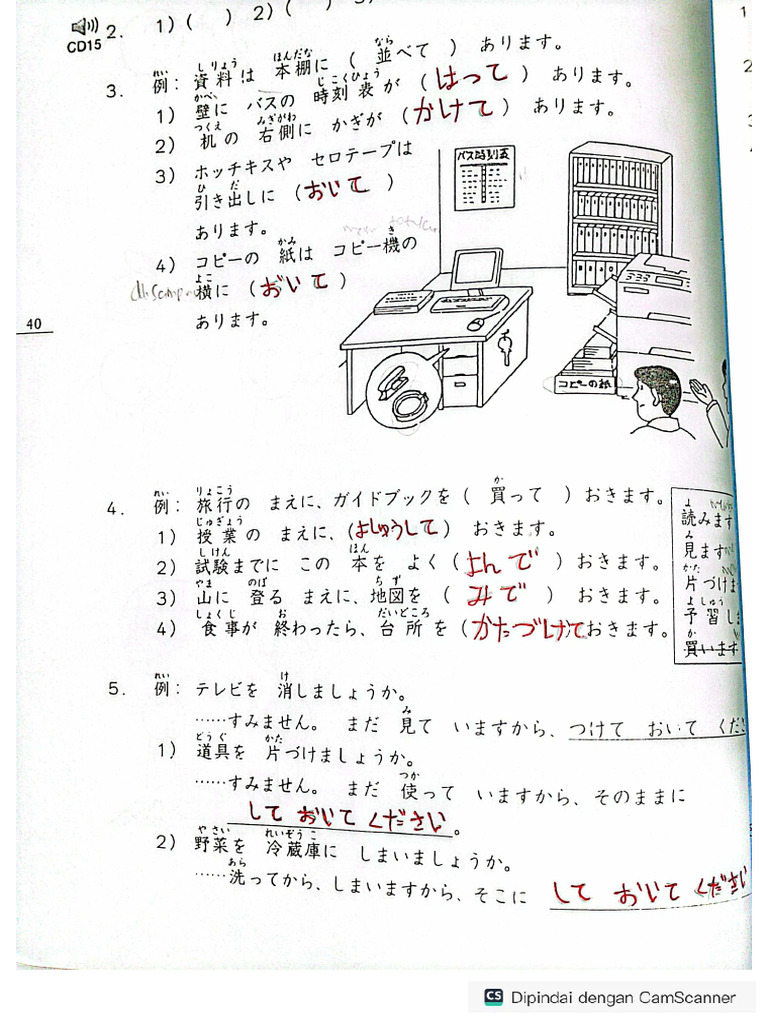 CD15 2. 1) ( ) 2) ( )
3. 例: 資料は 本棚に ( 並べて ) あります。
1) 壁に バスの 時刻表が (はって) あります。
2) 机の 右側に かぎが (かけて) あります。
3) ホッチキスや セロテープは
引き出しに (おいて)
あります。
4) コピーの 紙は コピー機の
横に (おいて)
あります。
バス時刻表
コピーの紙
40
4. 例: 旅行の まえに、ガイドブックを ( 買って ) おきます。
1) 授業の まえに、(よしゅうして) おきます。
2) 試験までに この 本を よく (よんで) おきます。
3) 山に 登る まえに、地図を (みで) おきます。
4) 食事が 終わったら、台所を (かたづけて おきます。
読みます
見ます
片づけま
予習しま
買います
5. 例: テレビを 消しましょうか。
……すみません。 まだ 見て いますから、つけて おいて くださ
1) 道具を 片づけましょうか。
……すみません。 まだ 使って いますから、そのままに
して おいて ください。
2) 野菜を 冷蔵庫に しまいましょうか。
……洗ってから、しまいますから、そこに して おいて ください
CS Dipindai dengan CamScanner